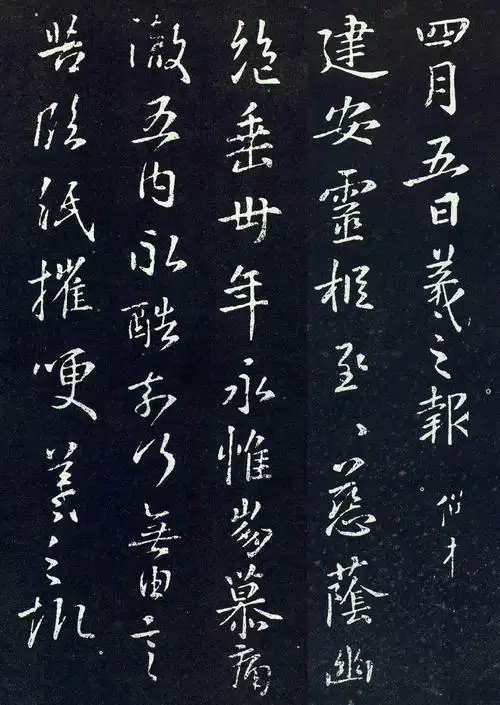 四月五日羲之報
建安靈柩至慈蔭幽
絶垂卅年永惟崩慕痛
徹五內永酷奈何無由言
苦臨紙摧哽羲之報